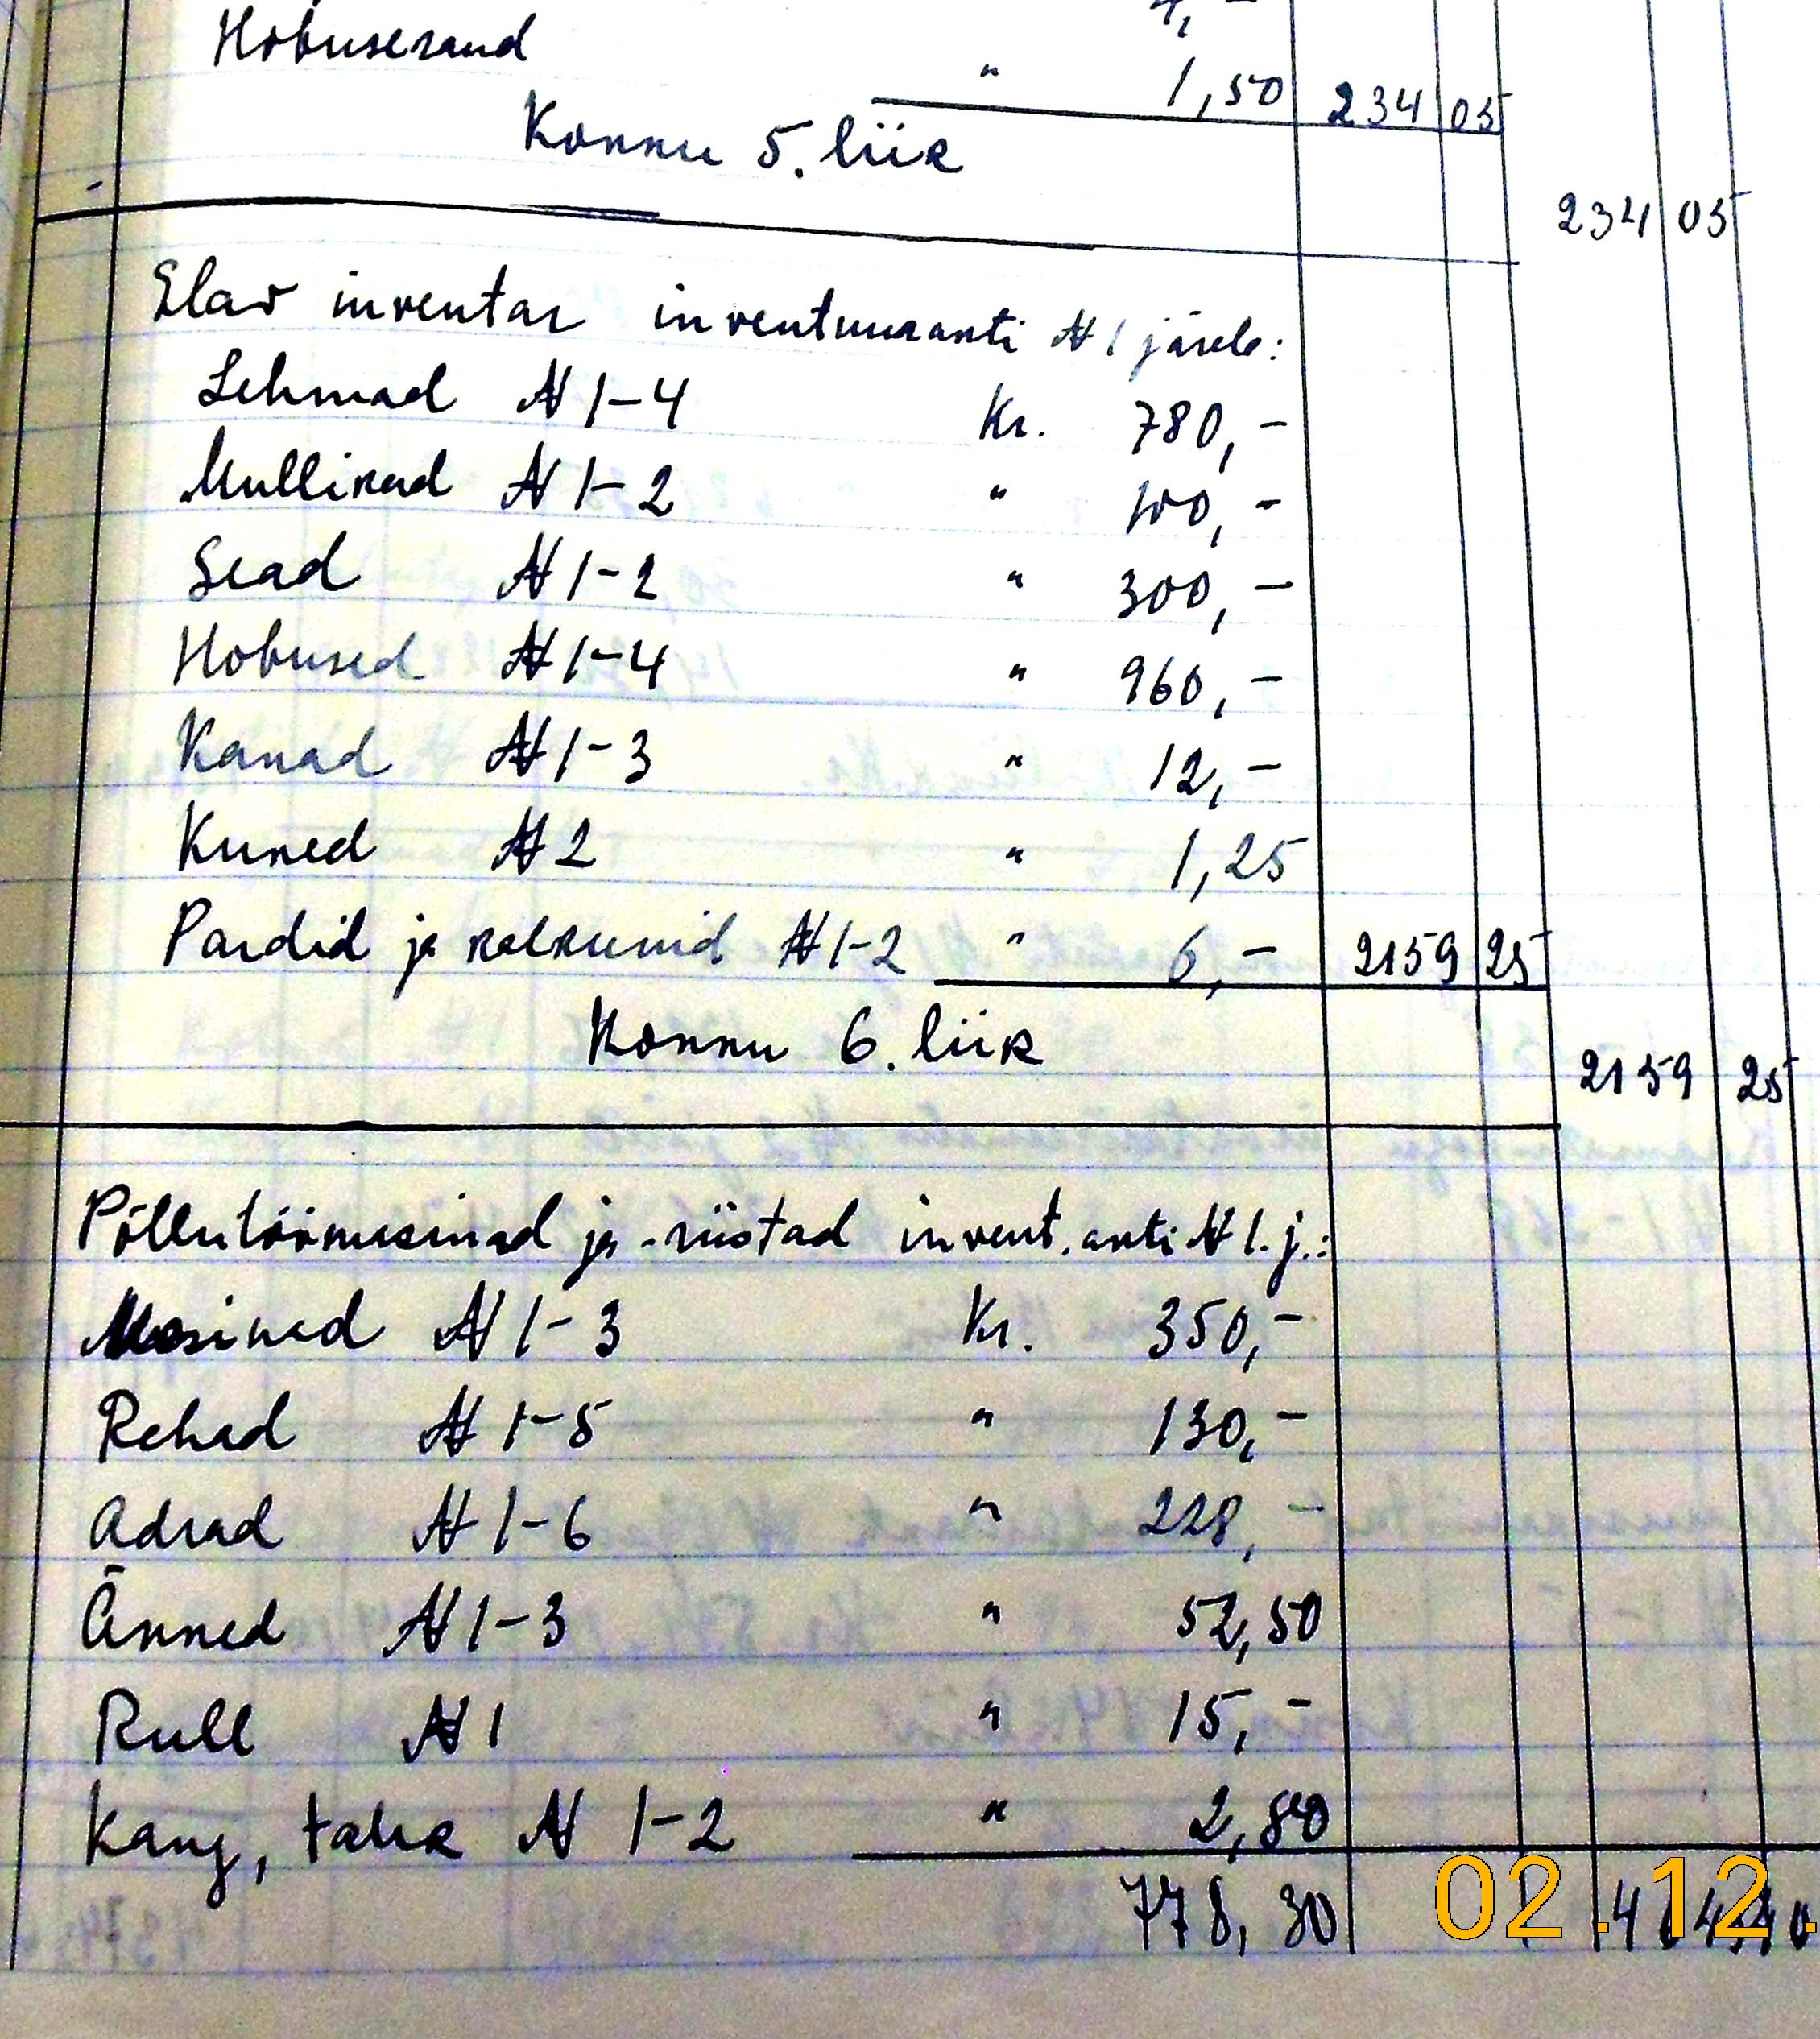 4,-
Hobuseraud " 1,50 234 05
Konnu 5. liik
234 05
Elav inventar inventuuranti № 1 järele:
Lehmad № 1-4 Kr. 780,-
Mullikad № 1-2 " 100,-
Sead № 1-2 " 300,-
Hobused № 1-4 " 960,-
Kanad № 1-3 " 12,-
Kuked № 2 " 1,25
Pardid ja kalkunid № 1-2 " 6,- 2159 25
Konnu 6. liik
2159 25
Põllutöömasinad ja -riistad invent. anti № 1. j.:
Masinad № 1-3 Kr. 350,-
Rehad № 1-5 " 130,-
Adrad № 1-6 " 228,-
Äkked № 1-3 " 52,50
Rull № 1 " 15,-
Kang, tahk № 1-2 " 2,80
778,30
02.12.